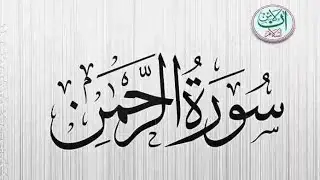 سُورَةُ الرَّحْمَٰن